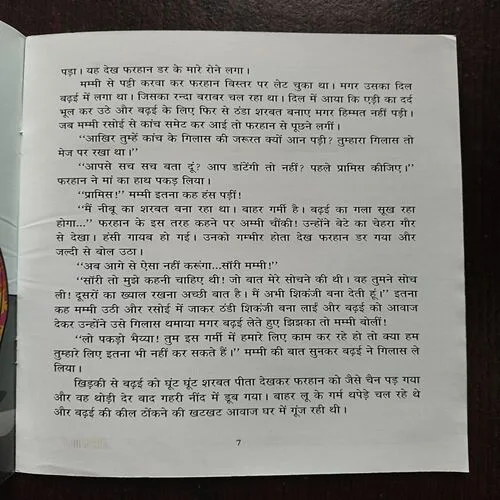 पड़ा। यह देख फरहान डर के मारे रोने लगा।
मम्मी से पट्टी करवा कर फरहान बिस्तर पर लेट चुका था। मगर उसका दिल
बढ़ई में लगा था। जिसका रन्दा बराबर चल रहा था। दिल में आया कि एड़ी का दर्द
भूल कर उठे और बढ़ई के लिए फिर से ठंडा शरबत बनाए मगर हिम्मत नहीं पड़ी।
जब मम्मी रसोई से कांच समेट कर आई तो फरहान से पूछने लगीं।
‘‘आखिर तुम्हें कांच के गिलास की जरूरत क्यों आन पड़ी? तुम्हारा गिलास तो
मेज पर रखा था।’’
‘‘आपसे सच सच बता दूं? आप डांटेंगी तो नहीं? पहले प्रामिस कीजिए।’’
फरहान ने मां का हाथ पकड़ लिया।
‘‘प्रामिस!’’ मम्मी इतना कह हंस पड़ीं!
‘‘मैं नीबू का शरबत बना रहा था। बाहर गर्मी है। बढ़ई का गला सूख रहा
होगा...’’ फरहान के इस तरह कहने पर अम्मी चौंकी! उन्होंने बेटे का चेहरा गौर
से देखा। हंसी गायब हो गई। उनको गम्भीर होता देख फरहान डर गया और
जल्दी से बोल उठा।
‘‘अब आगे से ऐसा नहीं करूंगा...सॉरी मम्मी!’’
‘‘सॉरी तो मुझे कहनी चाहिए थी! जो बात मेरे सोचने की थी। वह तुमने सोच
ली! दूसरों का ख्याल रखना अच्छी बात है। मैं अभी शिकंजी बना देती हूं।’’ इतना
कह मम्मी उठी और रसोई में जाकर ठंडी शिकंजी बना लाईं और बढ़ई को आवाज
देकर उन्होंने उसे गिलास थमाया मगर बढ़ई लेते हुए झिझका तो मम्मी बोलीं!
‘‘लो पकड़ो भैय्या! तुम इस गर्मी में हमारे लिए काम कर रहे हो तो क्या हम
तुम्हारे लिए इतना भी नहीं कर सकते हैं।’’ मम्मी की बात सुनकर बढ़ई ने गिलास ले
लिया।
खिड़की से बढ़ई को घूंट घूंट शरबत पीता देखकर फरहान को जैसे चैन पड़ गया
और वह थोड़ी देर बाद गहरी नींद में डूब गया। बाहर लू के गर्म थपेड़े चल रहे थे
और बढ़ई की कील ठोंकने की खटखट आवाज घर में गूंज रही थी।
7